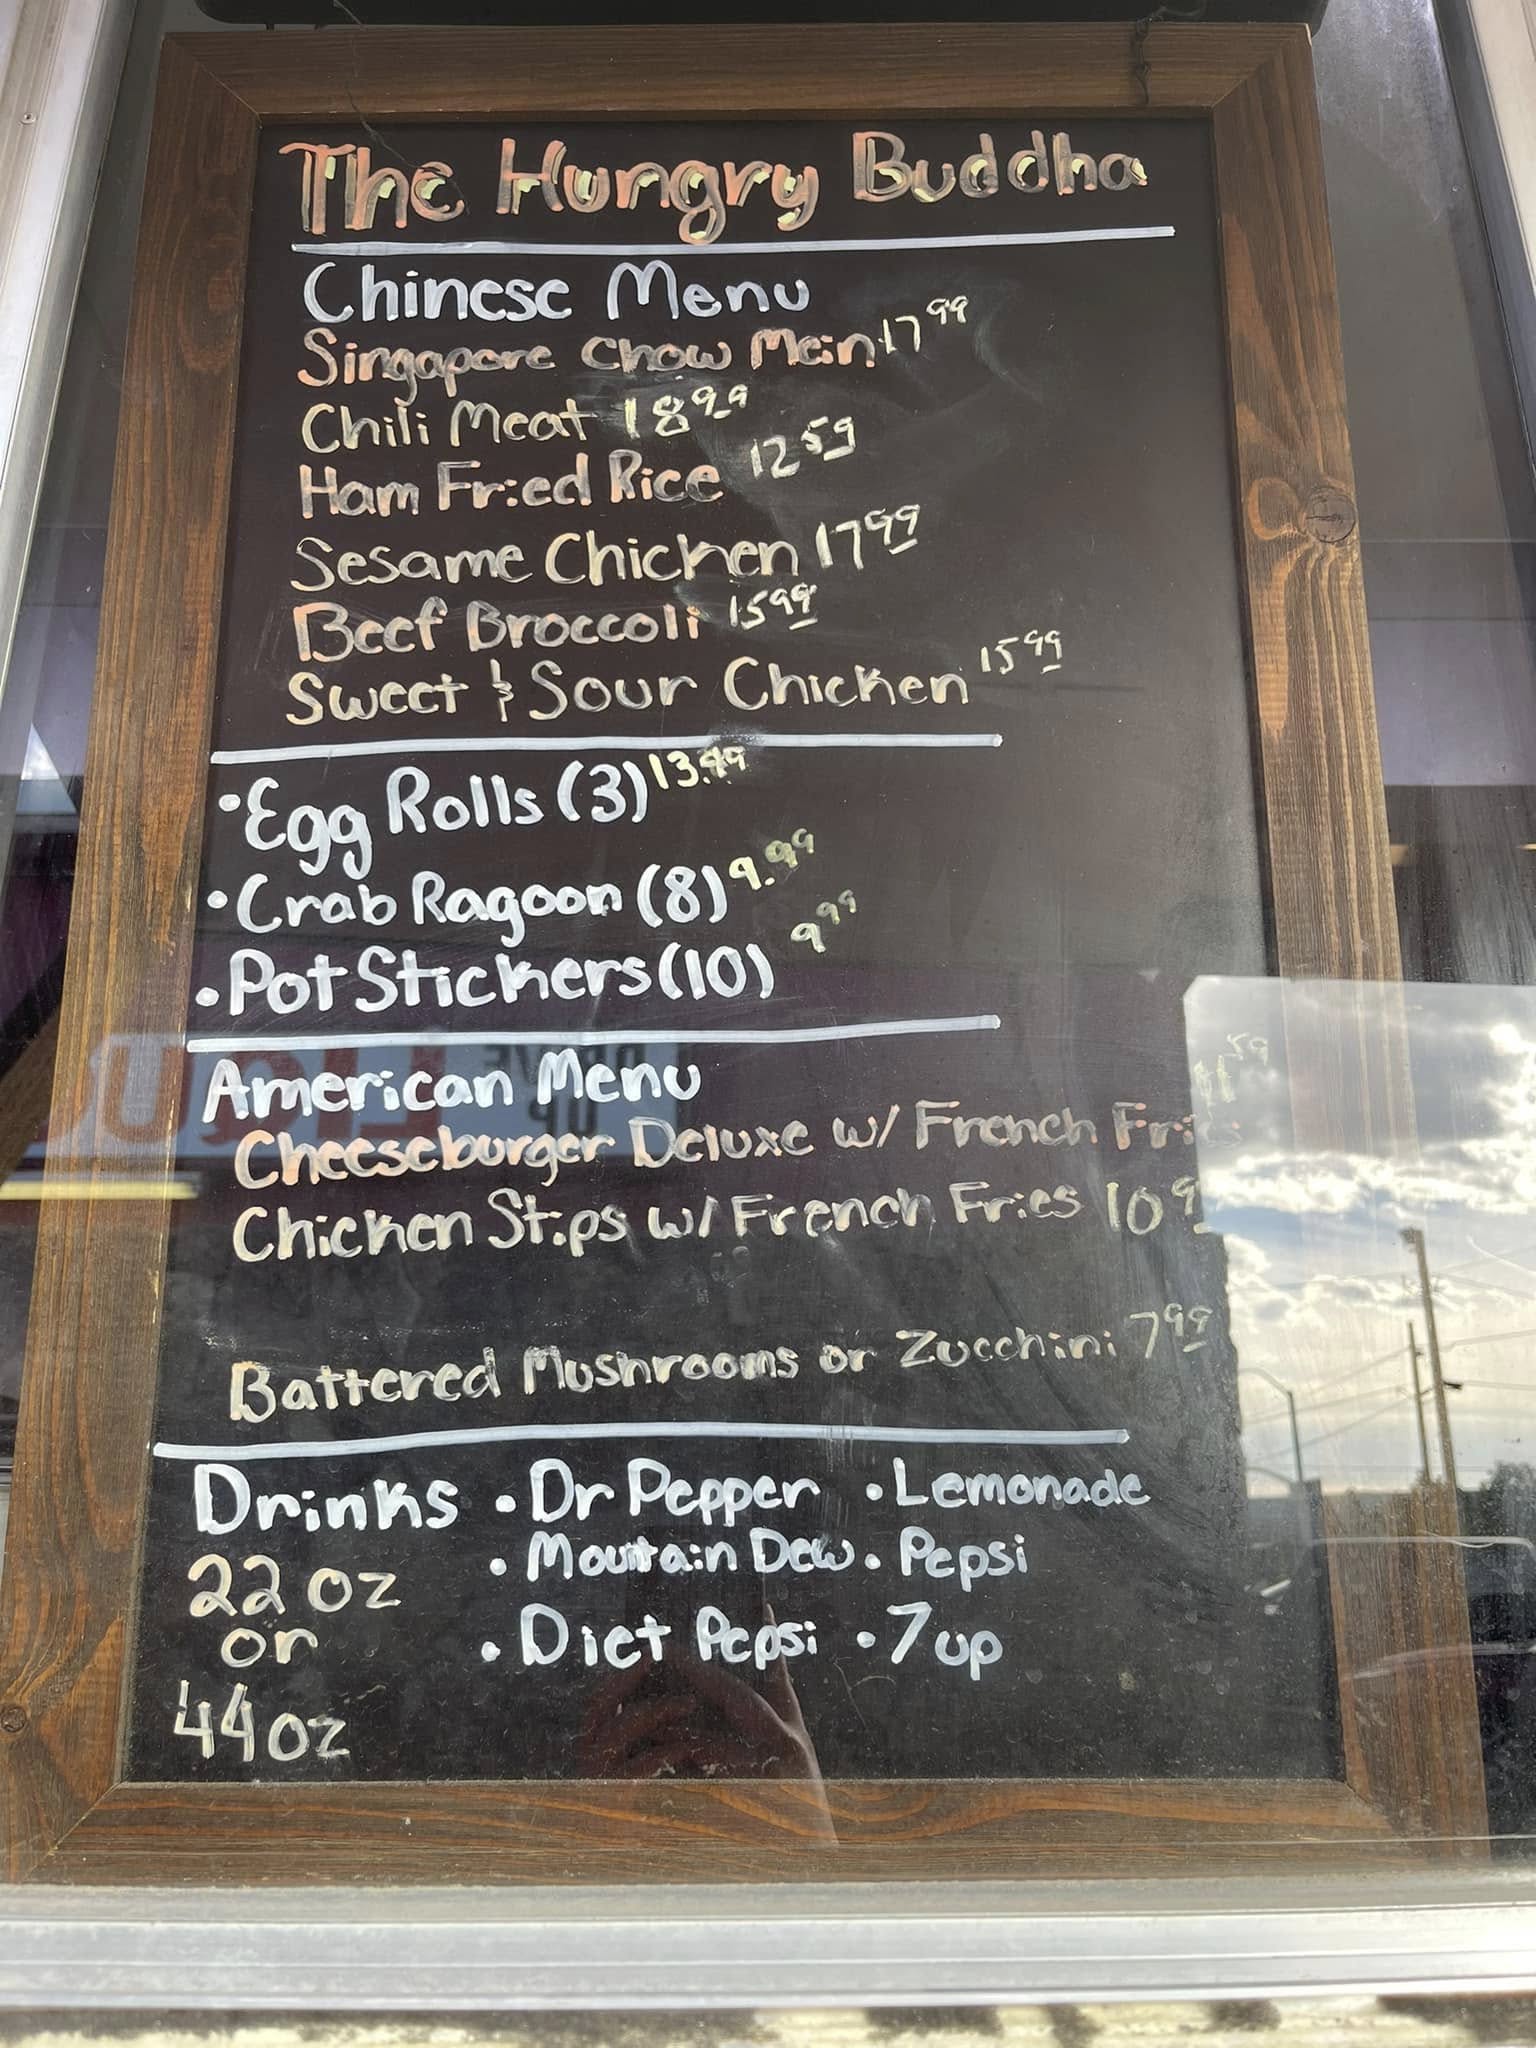 The Hungry Buddha
Chinese Menu
Singapore Chow Mein 17 99
Chili Meat 18 99
Ham Fried Rice 12 59
Sesame Chicken 17 99
Beef Broccoli 15 99
Sweet & Sour Chicken 15 99
• Egg Rolls (3) 13.99
• Crab Ragoon (8) 9.99
• Pot Stickers (10) 9 99
American Menu
Cheeseburger Deluxe w/ French Fries 11 59
Chicken Stips w/ French Fries 10
Battered Mushrooms or Zucchini 7 99
Drinks • Dr Pepper • Lemonade
22 oz • Mountain Dew • Pepsi
or • Diet Pepsi • 7up
44 oz